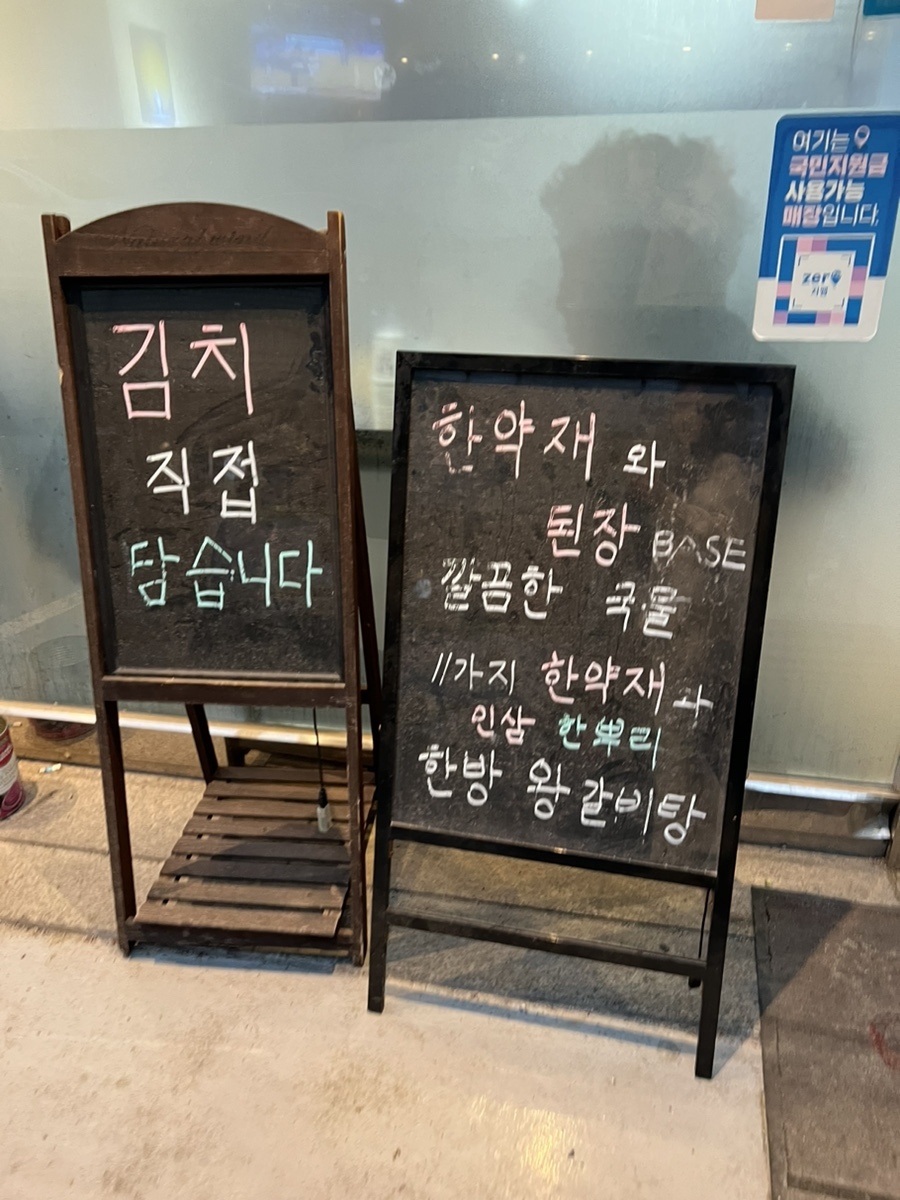 김치
직접
담습니다
한약재와
된장 BASE
깔끔한 국물
11가지 한약재와
인삼 한뿌리
한방 왕갈비탕
여기는
국민지원금
사용가능
매장입니다.
zero